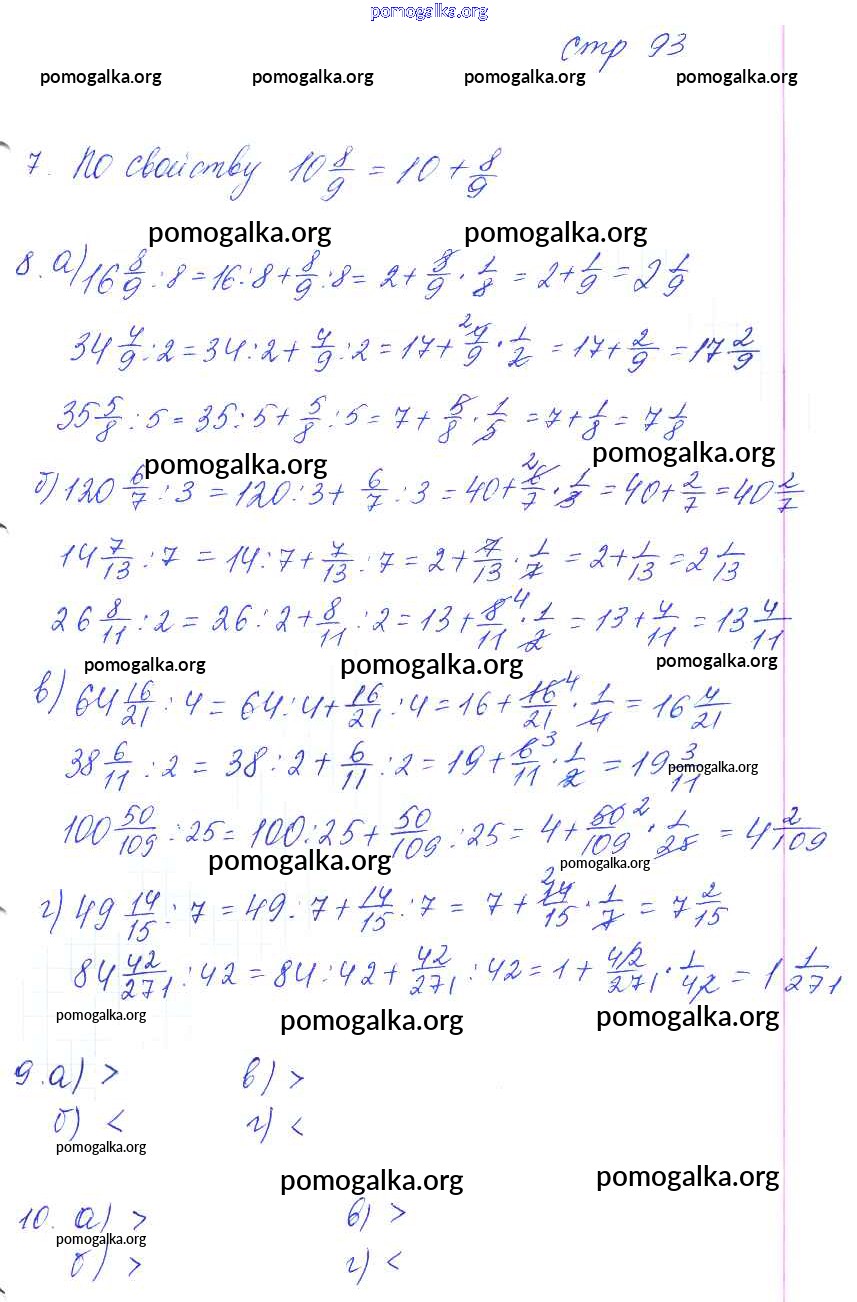 pomogalka.org
стр 93
pomogalka.org pomogalka.org pomogalka.org pomogalka.org
7. По свойству 10 8/9 = 10 + 8/9
pomogalka.org pomogalka.org
8. а) 16 8/9 : 8 = 16 : 8 + 8/9 : 8 = 2 + 8/9 · 1/8 = 2 + 1/9 = 2 1/9
34 4/9 : 2 = 34 : 2 + 4/9 : 2 = 17 + 4/9 2 · 1/2 = 17 + 2/9 = 17 2/9
35 5/8 : 5 = 35 : 5 + 5/8 : 5 = 7 + 5/8 · 1/5 = 7 + 1/8 = 7 1/8
pomogalka.org pomogalka.org
б) 120 6/7 : 3 = 120 : 3 + 6/7 : 3 = 40 + 6/7 2 · 1/3 = 40 + 2/7 = 40 2/7
14 7/13 : 7 = 14 : 7 + 7/13 : 7 = 2 + 7/13 · 1/7 = 2 + 1/13 = 2 1/13
26 8/11 : 2 = 26 : 2 + 8/11 : 2 = 13 + 8/11 4 · 1/2 = 13 + 4/11 = 13 4/11
pomogalka.org pomogalka.org pomogalka.org
в) 64 16/21 : 4 = 64 : 4 + 16/21 : 4 = 16 + 16/21 4 · 1/4 = 16 4/21
38 6/11 : 2 = 38 : 2 + 6/11 : 2 = 19 + 6/11 3 · 1/2 = 19 3/11
pomogalka.org
100 50/109 : 25 = 100 : 25 + 50/109 : 25 = 4 + 50/109 2 · 1/25 = 4 2/109
pomogalka.org pomogalka.org
г) 49 14/15 : 7 = 49 : 7 + 14/15 : 7 = 7 + 14/15 2 · 1/7 = 7 2/15
84 42/271 : 42 = 84 : 42 + 42/271 : 42 = 1 + 42/271 · 1/42 = 1 1/271
pomogalka.org pomogalka.org pomogalka.org
9. а) > в) >
б) < г) <
pomogalka.org
pomogalka.org pomogalka.org
10. а) > в) >
pomogalka.org
б) > г) <